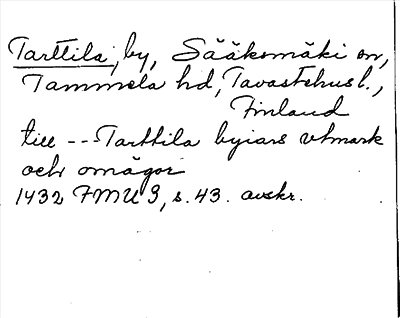 Tarttila, by, Sääksmäki sn,
Tammela hd, Tavastehus l.,
Finland
till --- Tarttila byiars vtmark
ock omägor
1432 FMU 3, s. 43. avskr.